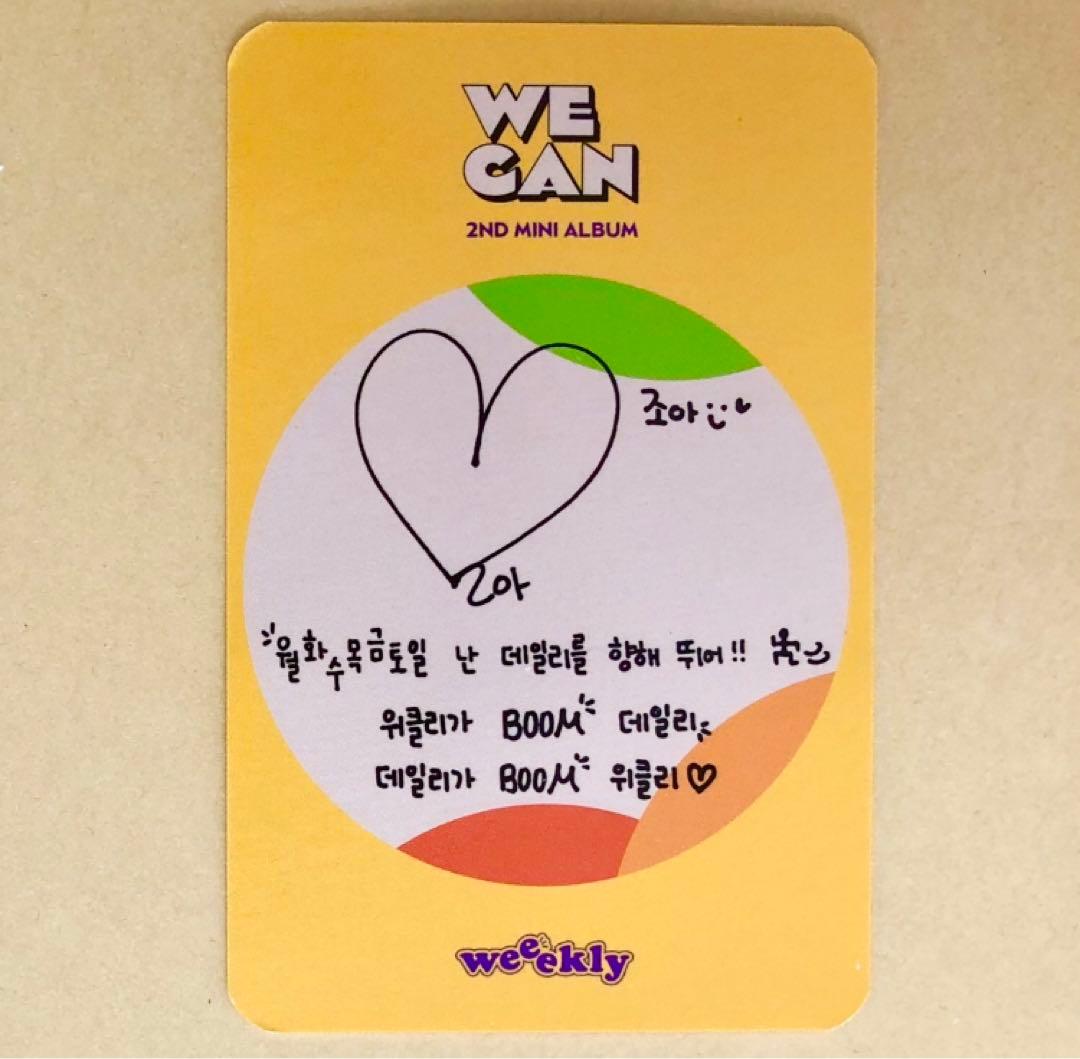 WE
CAN
2ND MINI ALBUM
조아
조아
월화수목금토일 난 데일리를 향해 뛰어!!
위클리가 BOOM 데일리
데일리가 BOOM 위클리♡
weeekly